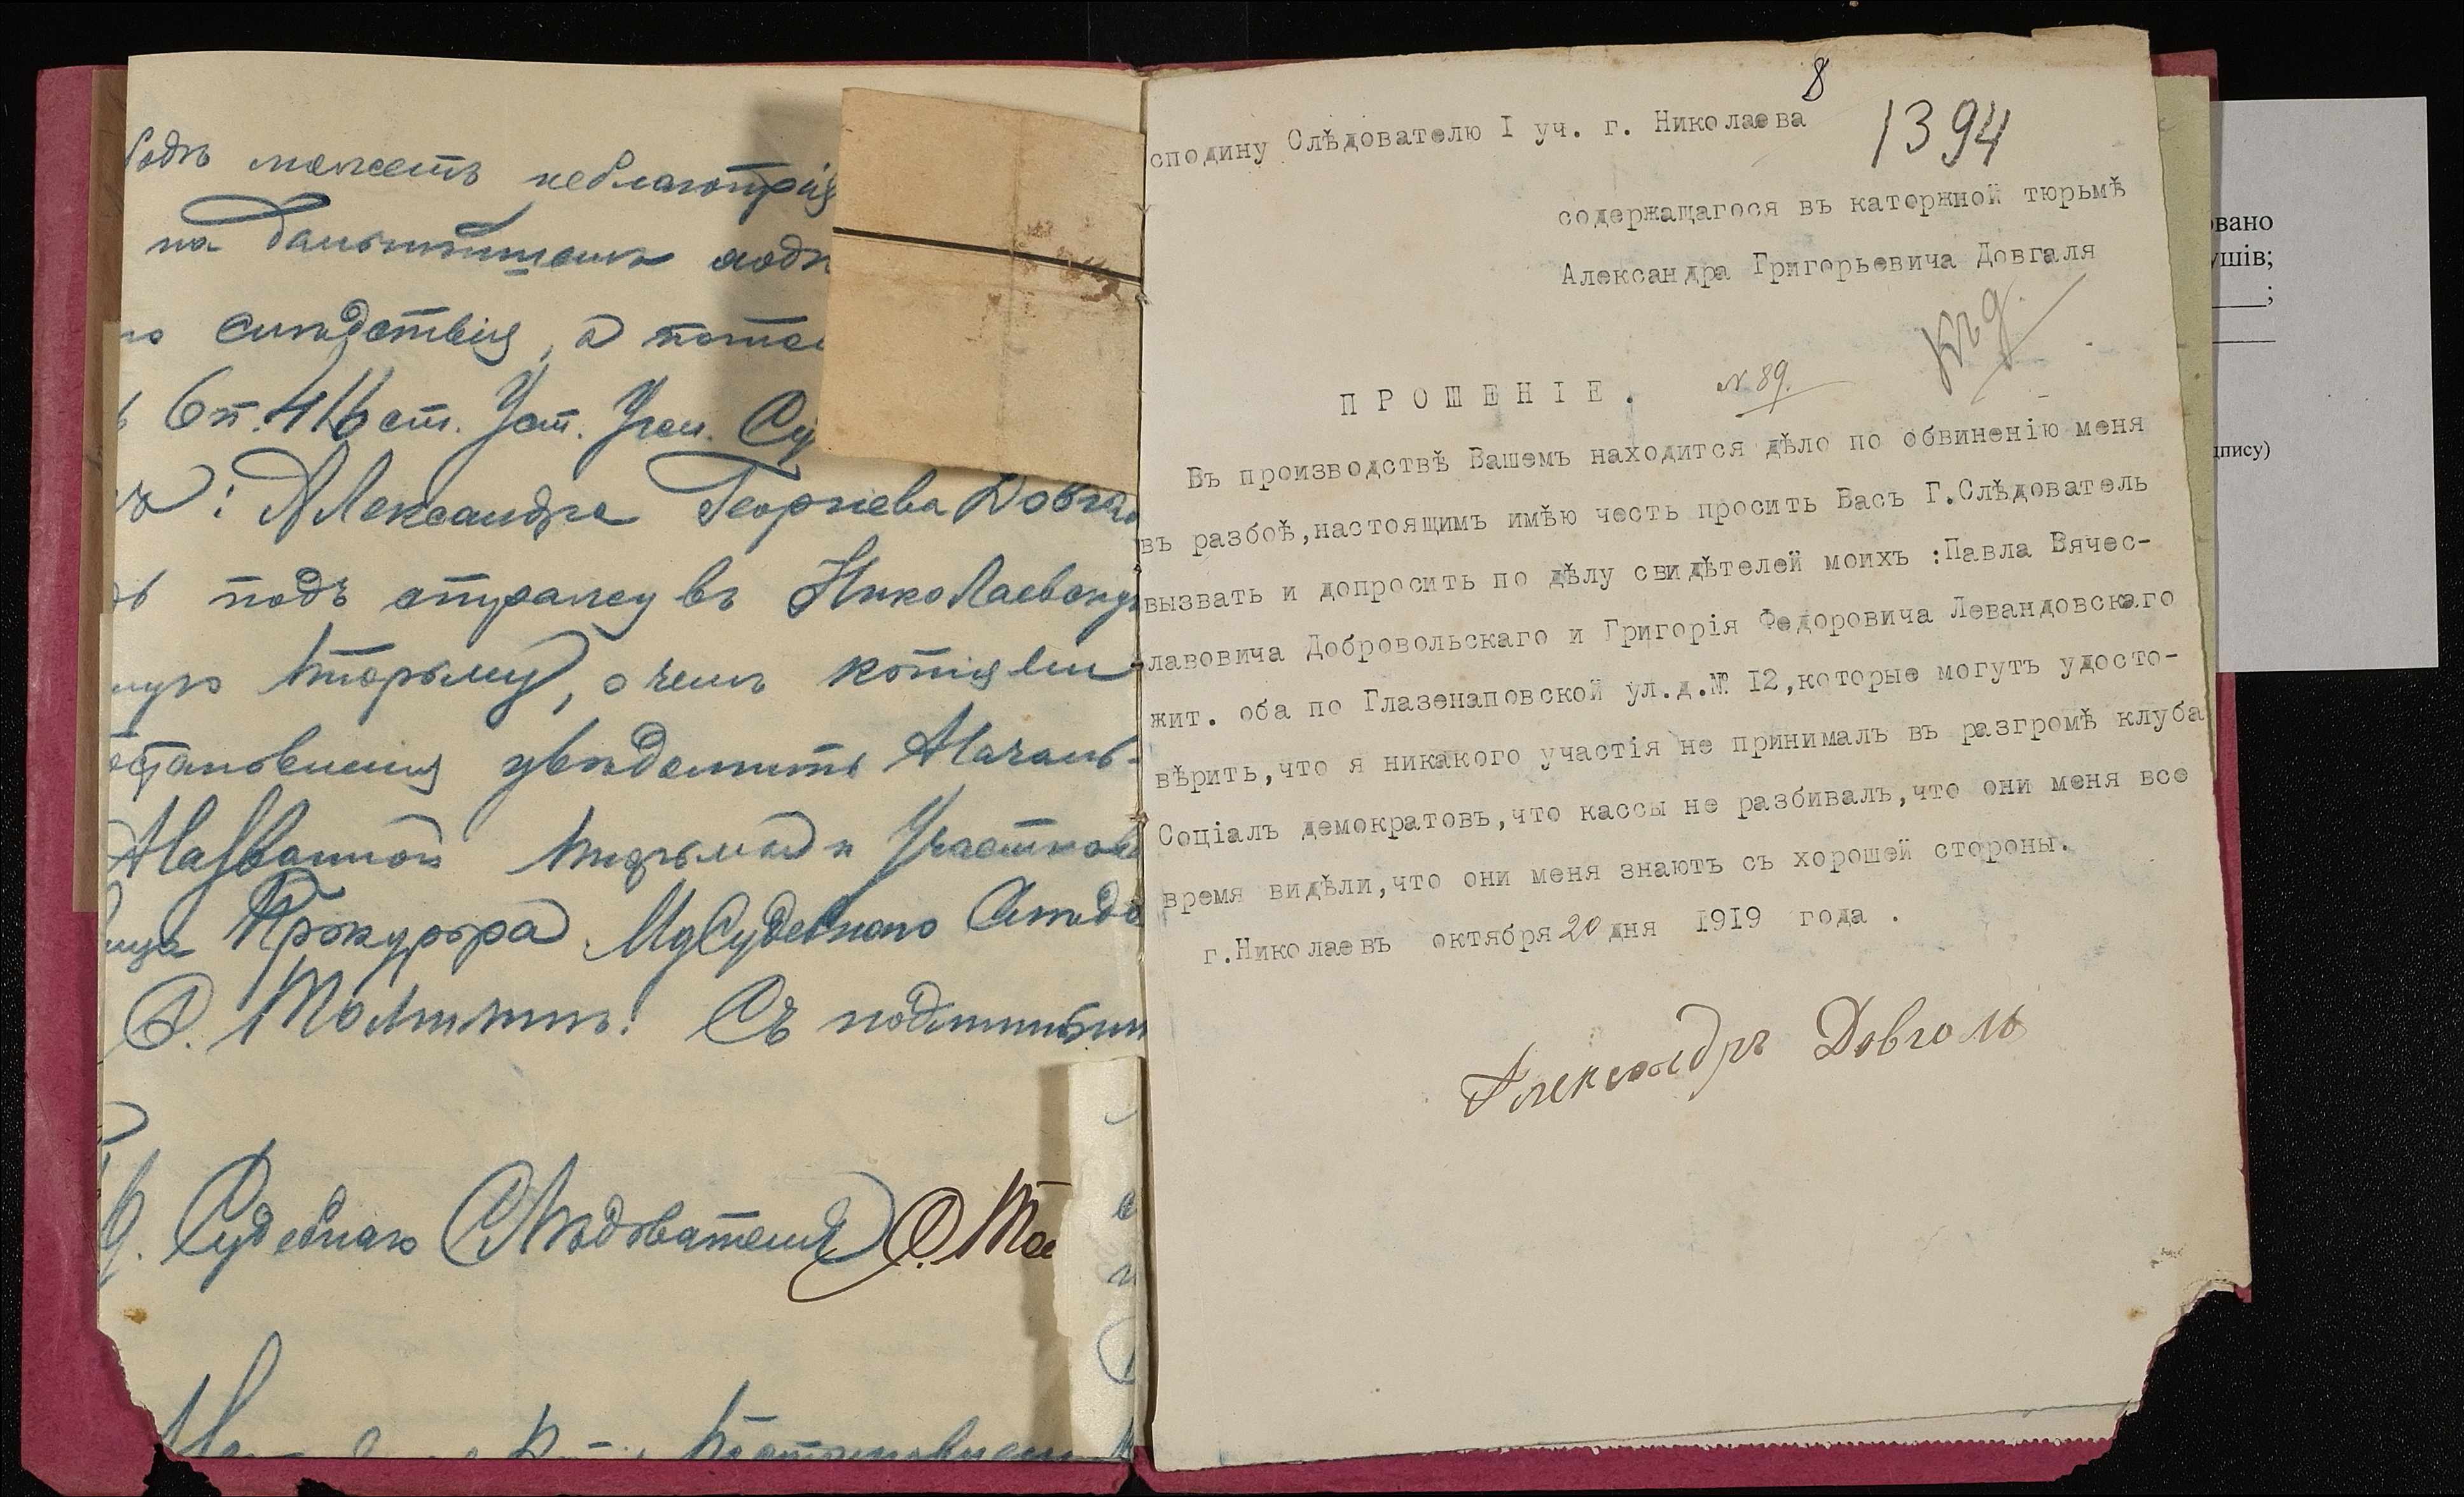 можетъ неблагопрія
на дальнѣйшемъ ходѣ
слѣдствія, а потом
6 п. 416 ст. Уст. Угол. Су
: Александра Георгіева Довгал
подъ стражу въ Николаевску
тюрьму, о чемъ копіями
становленія увѣдомить Началь-
Названной тюрьмы и Участков
Прокурора. Ид Судебнаго Слѣдо
Съ подлиннымъ
Судебнаго Слѣдователя
8
1394
сподину Слѣдователю I уч. г. Николаева
содержащагося въ каторжной тюрьмѣ
Александра Григорьевича Довгаля
Къ д.
ПРОШЕНІЕ.
№ 89.
Въ производствѣ Вашемъ находится дѣло по обвиненію меня
въ разбоѣ,настоящимъ имѣю честь просить Васъ Г.Слѣдователь
вызвать и допросить по дѣлу свидѣтелей моихъ :Павла Вячес-
лавовича Добровольскаго и Григорія Федоровича Левандовскаго
жит. оба по Глазенаповской ул.д.№ I2,которые могутъ удосто-
вѣрить,что я никакого участія не принималъ въ разгромѣ клуба
Соціалъ демократовъ,что кассы не разбивалъ,что они меня все
время видѣли,что они меня знаютъ съ хорошей стороны.
г.Николаевъ октября 20 дня I9I9 года .
Александръ Довгаль
овано
ушів;
;
дпису)